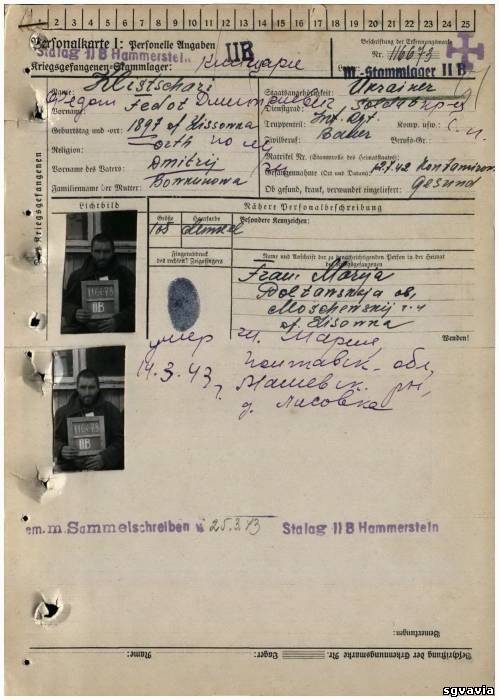 1 2 3 4 5 6 7 8 9 10 11 12 13 14 15 16 17 18 19 20 21 22 23 24 25
Personalkarte I: Personelle Angaben
Stalag II B Hammerstein
IIB
Beschriftung der Erkennungsmarke
Nr. 116673
Kriegsgefangenen-Stammlager:
M.-Stammlager II B
Des Kriegsgefangenen
Name: Klistschari
Staatsangehörigkeit: Ukrainer
Vorname: Fedot
Федот Дмитриевич
Dienstgrad: Soldat
Geburtstag und -ort: 1897
Truppenteil: Inf. Rgt. Komp. usw.:
Religion: Orth
Zivilberuf: Bauer Berufs-Gr.:
Vorname des Vaters: Dmitrij
Matrikel Nr. (Stammrolle des Heimatstaates):
Gefangennahme (Ort und Datum): 12.7.42
Familienname der Mutter:
Ob gesund, krank, verwundet eingeliefert: Gesund
Lichtbild
Nähere Personalbeschreibung
Größe Haarfarbe Besondere Kennzeichen:
168 dunkel
Fingerabdruck
des rechten Zeigefingers
Name und Anschrift der zu benachrichtigenden Person in der Heimat
des Kriegsgefangenen
116673
IIB
Frau: Marija
Poltawskija ob.
Wenden!
умер ж. Мария
14.3.43 г. Полтавск. обл,
Машевск. р-н,
д. Лисовка
116673
IIB
m. Sammelschreiben v. 25.3.43 Stalag II B Hammerstein
Bemerkungen:
Beschriftung der Erkennungsmarke Nr. Lager: Name:
sgvavia